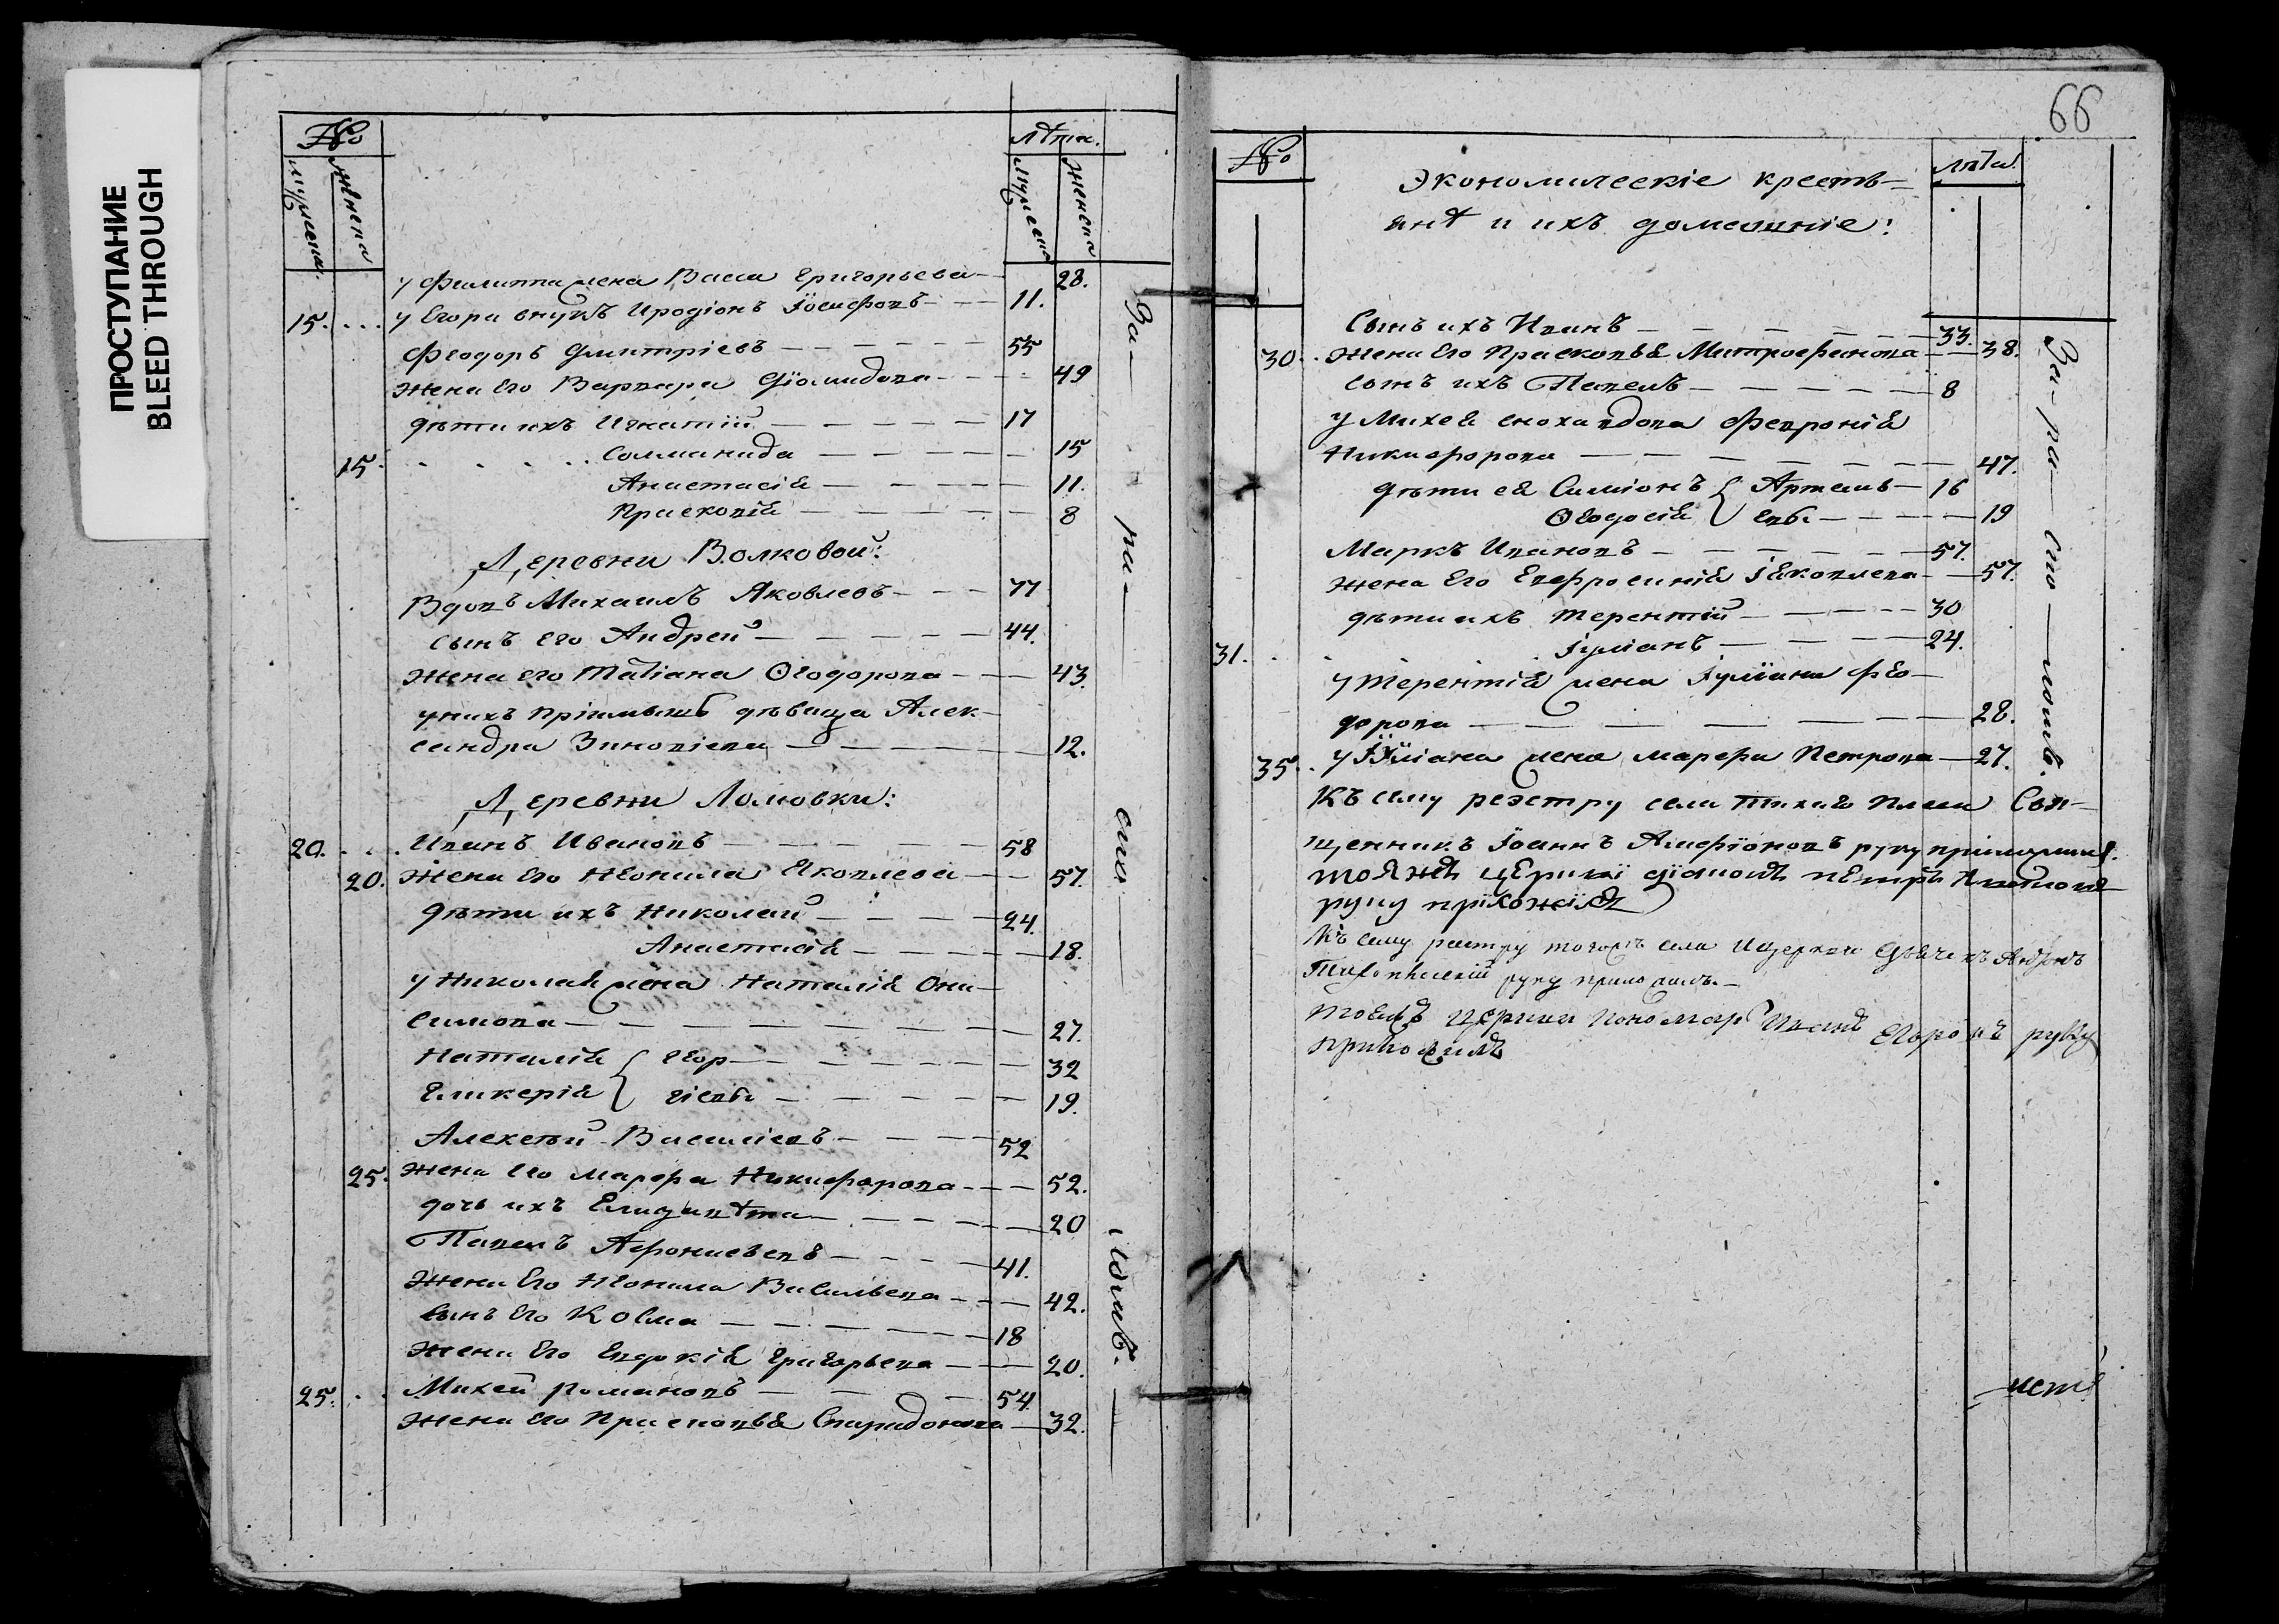 ПРОСТУПАНИЕ
BLEED THROUGH
№
мужеска.
женска
лѣта.
мужеска
женска
у Филиппа жена Васса Григорьева 28.
15. у Егора внукъ Иродіонъ Іосифовъ 11.
Феодоръ Дмитріевъ 55
жена его Варвара Діомидова 49
дѣти ихъ Игнатій 17
15. Соломинида 15
Анастасія 11.
Праскопія 8
Деревни Волковой:
Вдовъ Михаилъ Яковлевъ 77
сынъ его Андрей 44.
жена его Татіана Ѳеодорова 43.
у нихъ пріимышъ дѣвица Алек-
сандра Зиновіева 12.
Деревни Ломовки:
20. Иванъ Ивановъ 58
20. жена его Неонила Яковлева 57.
дѣти ихъ Николай 24.
Анастасія 18.
у Николая жена Наталія Они-
симова 27.
Наталія Егор 32
Гликерія гіевы 19.
Алексѣй Василіевъ 52
25. жена его Марфа Никифорова 52.
дочь ихъ Елизавѣта 20
Павелъ Афонасьевъ 41.
жена его Неонила Васильева 42.
сынъ его Косма 18
жена его Евдокія Григорьева 20.
25. Михей Романовъ 54.
жена его Прасковья Спиридонова 32.
За – ра – сто – ломъ.
66
№
лѣта
Экономическіе кресть-
янѣ и ихъ домашніе:
Сынъ ихъ Иванъ 33.
30. жена его Прасковья Митрофанова 38.
сынъ ихъ Павелъ 8
у Михея сноха вдова Февронія
Никифорова 47.
дѣти ея Симіонъ Артемь 16
Ѳеодосія евы 19
Маркъ Ивановъ 57.
жена его Евфросинія Іяковлева 57.
дѣти ихъ Терентій 30
31. Іуліанъ 24.
у Терентія жена Іуліана Фео-
дорова 28.
35. у Іуліана жена Марфа Петрова 27.
Къ сему реэстру села Тихаго Плеса Свя-
щенникъ Іоаннъ Амфіоновъ руку приложилъ.
тоя же церкви діаконъ Петръ
руку приложилъ
Къ сему реэстру тогожъ села церкви Дьячекъ
руку приложилъ.
тоежъ церкви пономарь Иванъ Егоровъ руку
приложилъ
За – ра – сто – ломъ.